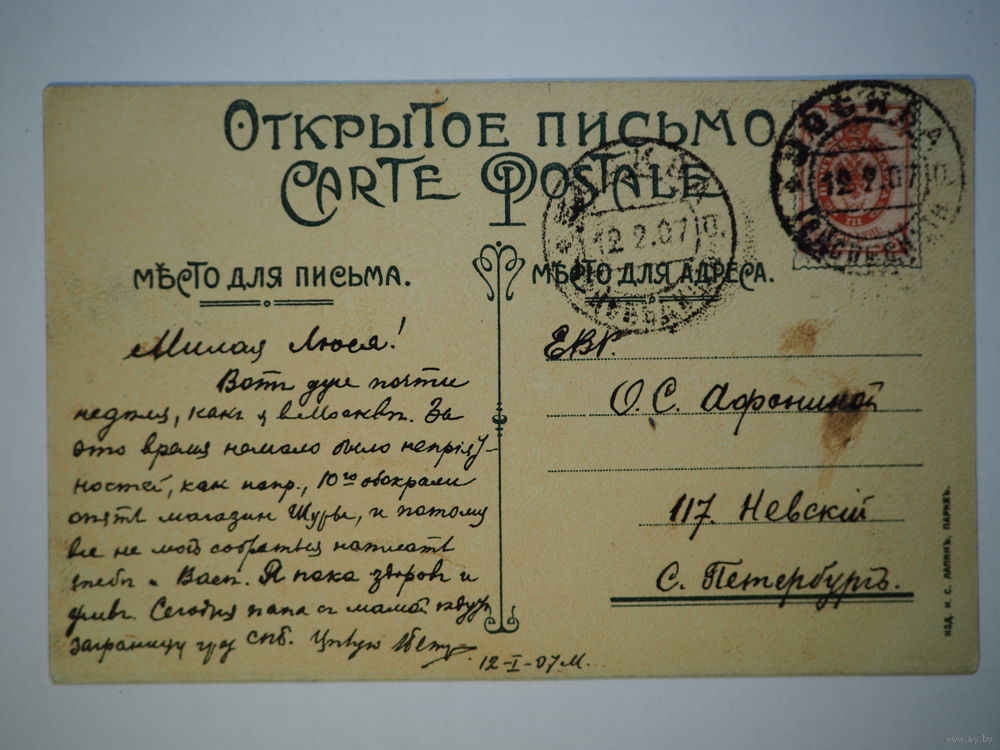 ОТКРЫТОЕ ПИСЬМО
CARTE POSTALE
МѢСТО ДЛЯ ПИСЬМА.
МѢСТО ДЛЯ АДРЕСА.
МОСКВА
12.2.07
12.2.07
Милая Люся!
Вотъ уже почти
недѣля, какъ я въ Москвѣ. За
это время немало было непріят-
ностей, как напр., 10го обокрали
опять магазин Шуры, и потому
все не мог собраться написать
тебѣ и Васѣ. Я пока здоровъ и
живъ. Сегодня папа съ мамой ѣдутъ
заграницу чрез СПб. Цѣлую
12-I-07 М.
ЕВР.
О. С. Афониной
117. Невскій
С. Петербургъ.
ИЗД. И. С. ЛАПИНЪ. ПАРИЖЪ.
www.ay.by